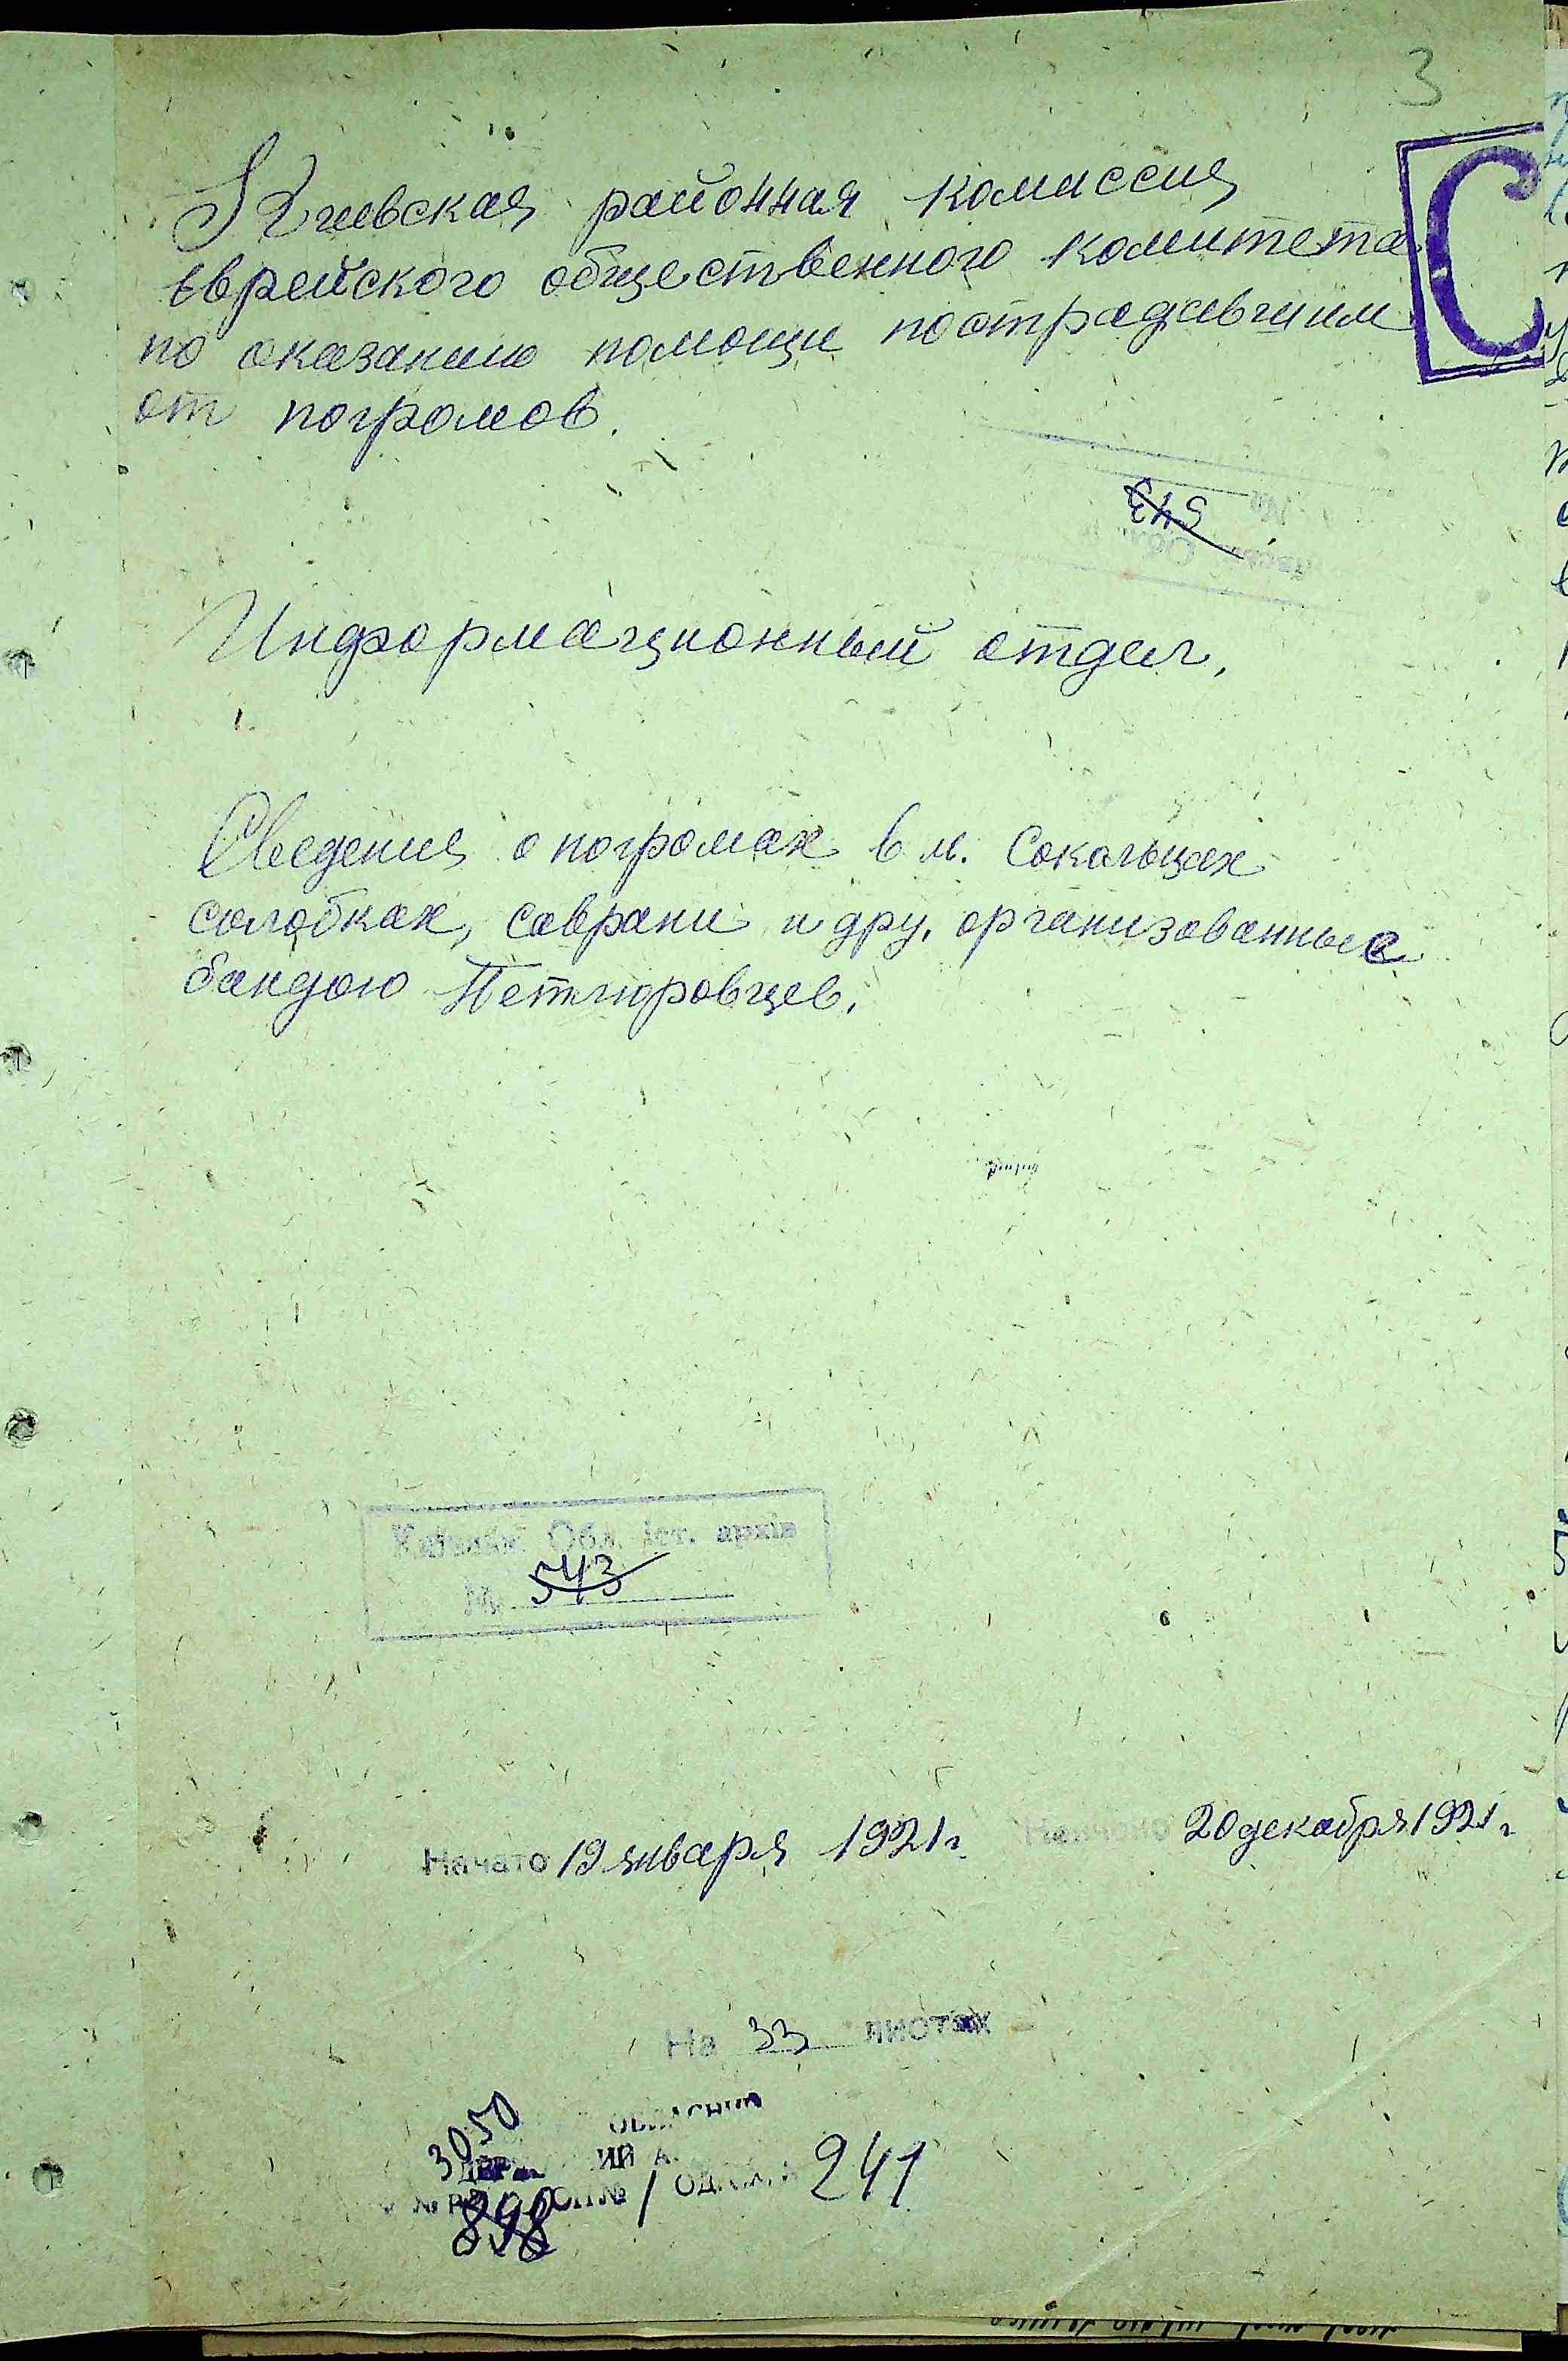 3
Киевская районная комиссия
еврейского общественного комитета
по оказанию помощи пострадавшим
от погромов.
С
543
Информационный отдел,
Сведения о погромах в м. Сокольцах
солобках, саврани и дру. организованные
бандою Петлюровцев.
Обл. іст. архів
№ 543
Начато 19 января 1921 г. 20 декабря 1921 г.
На 33 листах
3050
№ 1 241
898